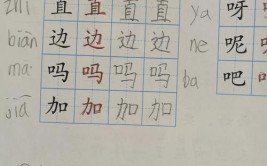 zhí 直 直 直 直 ya 呀
biān 边 边 边 边 ne 呢 呢
ma 吗 吗 吗 吗 ba 吧
jiā 加 加 加 加